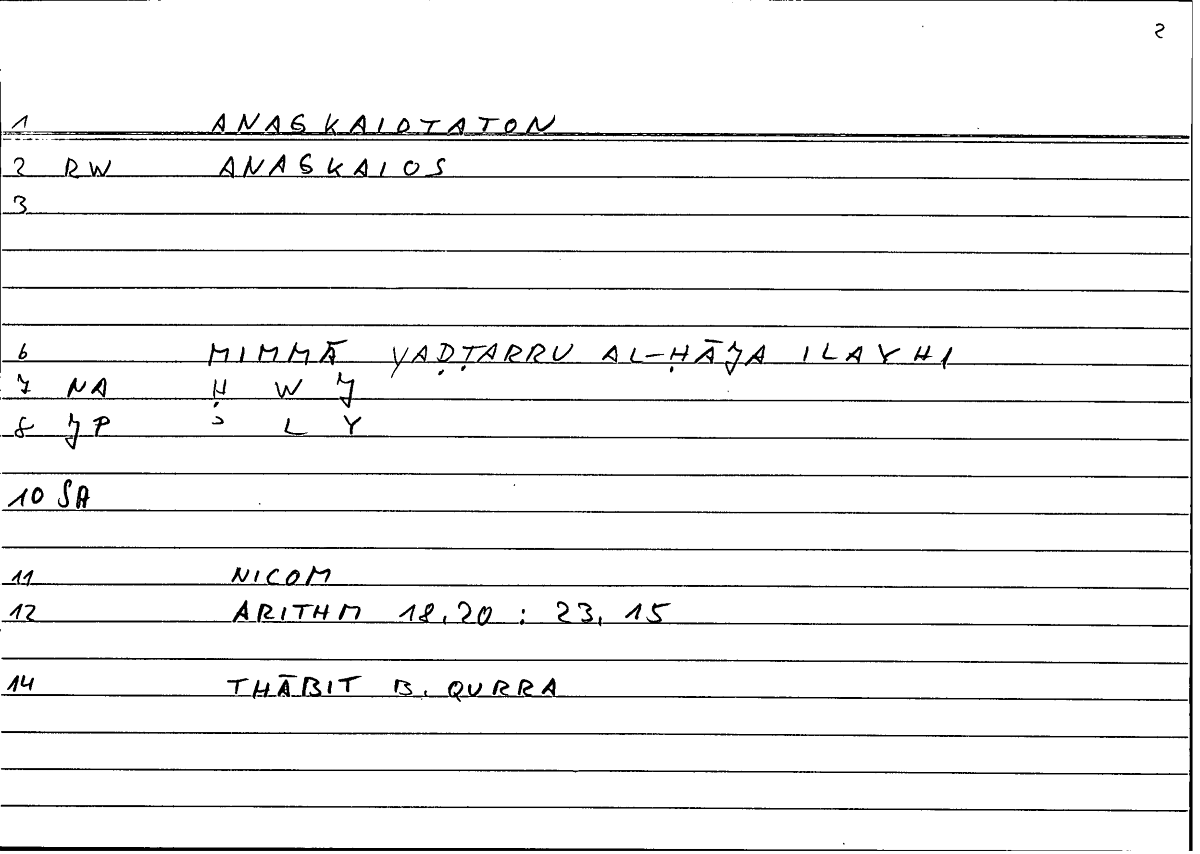 2
1 ANAGKAIOTATON
2 RW ANAGKAIOS
3
6 MIMMĀ YAḌṬARRU AL-ḤĀJA ILAYHI
7 NA Ḥ W J
8 JP ʾ L Y
10 SA
11 NICOM
12 ARITHM 18,20 : 23,15
14 THĀBIT B. QURRA